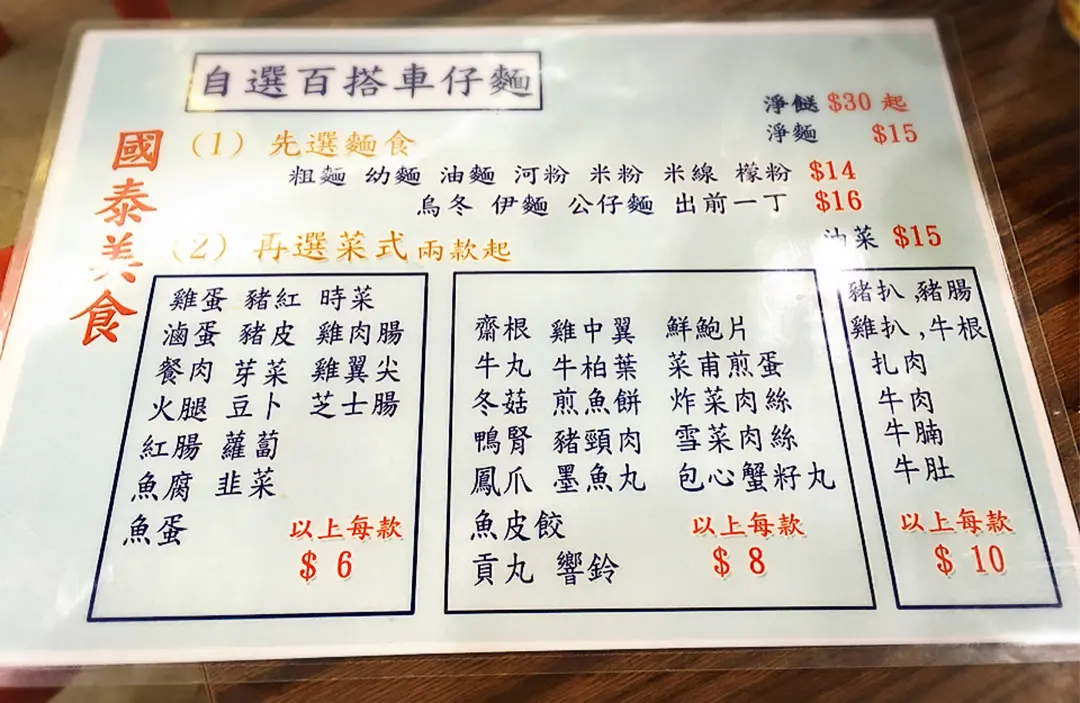 自選百搭車仔麵
國泰美食
淨餸 $30 起
淨麵 $15
(1) 先選麵食
粗麵 幼麵 油麵 河粉 米粉 米線 檬粉 $14
烏冬 伊麵 公仔麵 出前一丁 $16
(2) 再選菜式 兩款起
油菜 $15
雞蛋 豬紅 時菜
滷蛋 豬皮 雞肉腸
餐肉 芽菜 雞翼尖
火腿 豆卜 芝士腸
紅腸 蘿蔔
魚腐 韭菜
魚蛋
以上每款
$ 6
齋根 雞中翼 鮮鮑片
牛丸 牛柏葉 菜甫煎蛋
冬菇 煎魚餅 炸菜肉絲
鴨腎 豬頸肉 雪菜肉絲
鳳爪 墨魚丸 包心蟹籽丸
魚皮餃
貢丸 響鈴
以上每款
$ 8
豬扒,豬腸
雞扒,牛根
扎肉
牛肉
牛腩
牛肚
以上每款
$ 10